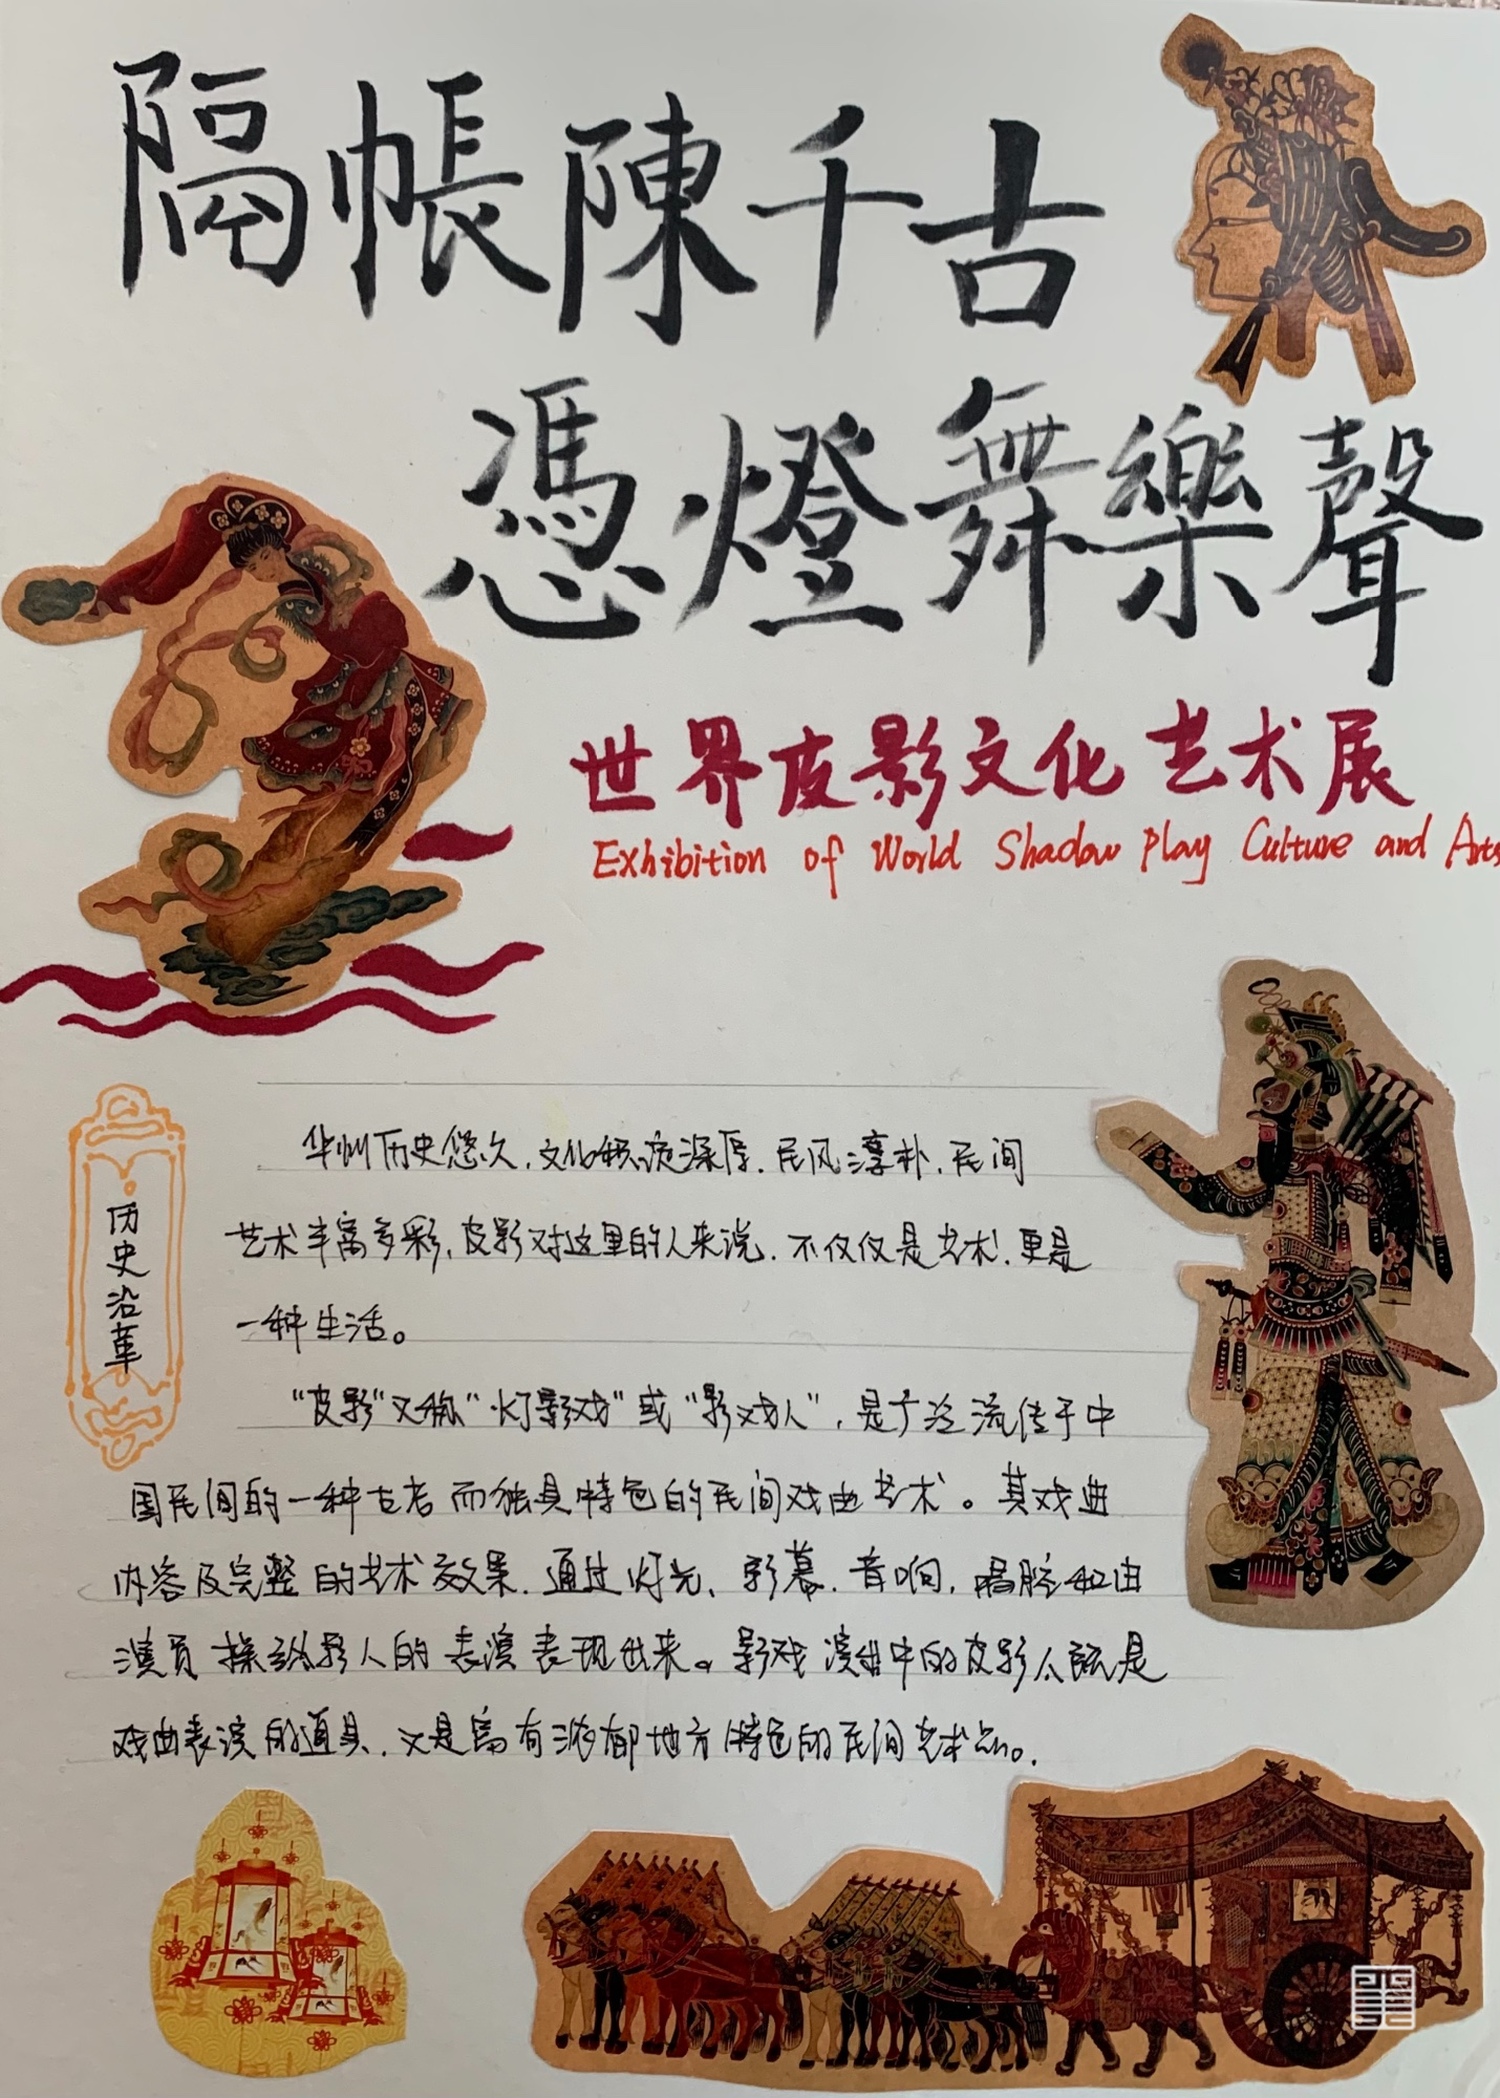 隔帳陳千古
憑燈舞樂聲
世界皮影文化艺术展
Exhibition of World Shadow Play Culture and Arts
历史沿革
华州历史悠久，文化积淀深厚，民风淳朴，民间
艺术丰富多彩，皮影对这里的人来说，不仅仅是艺术！更是
一种生活。
“皮影”又称“灯影戏”或“影戏人”，是广泛流传于中
国民间的一种古老而独具特色的民间戏曲艺术。其戏曲
内容及完整的艺术效果，通过灯光、影幕、音响，唱腔和由
演员操纵影人的表演表现出来。影戏演出中的皮影人既是
戏曲表演的道具，又是富有浓郁地方特色的民间艺术品。